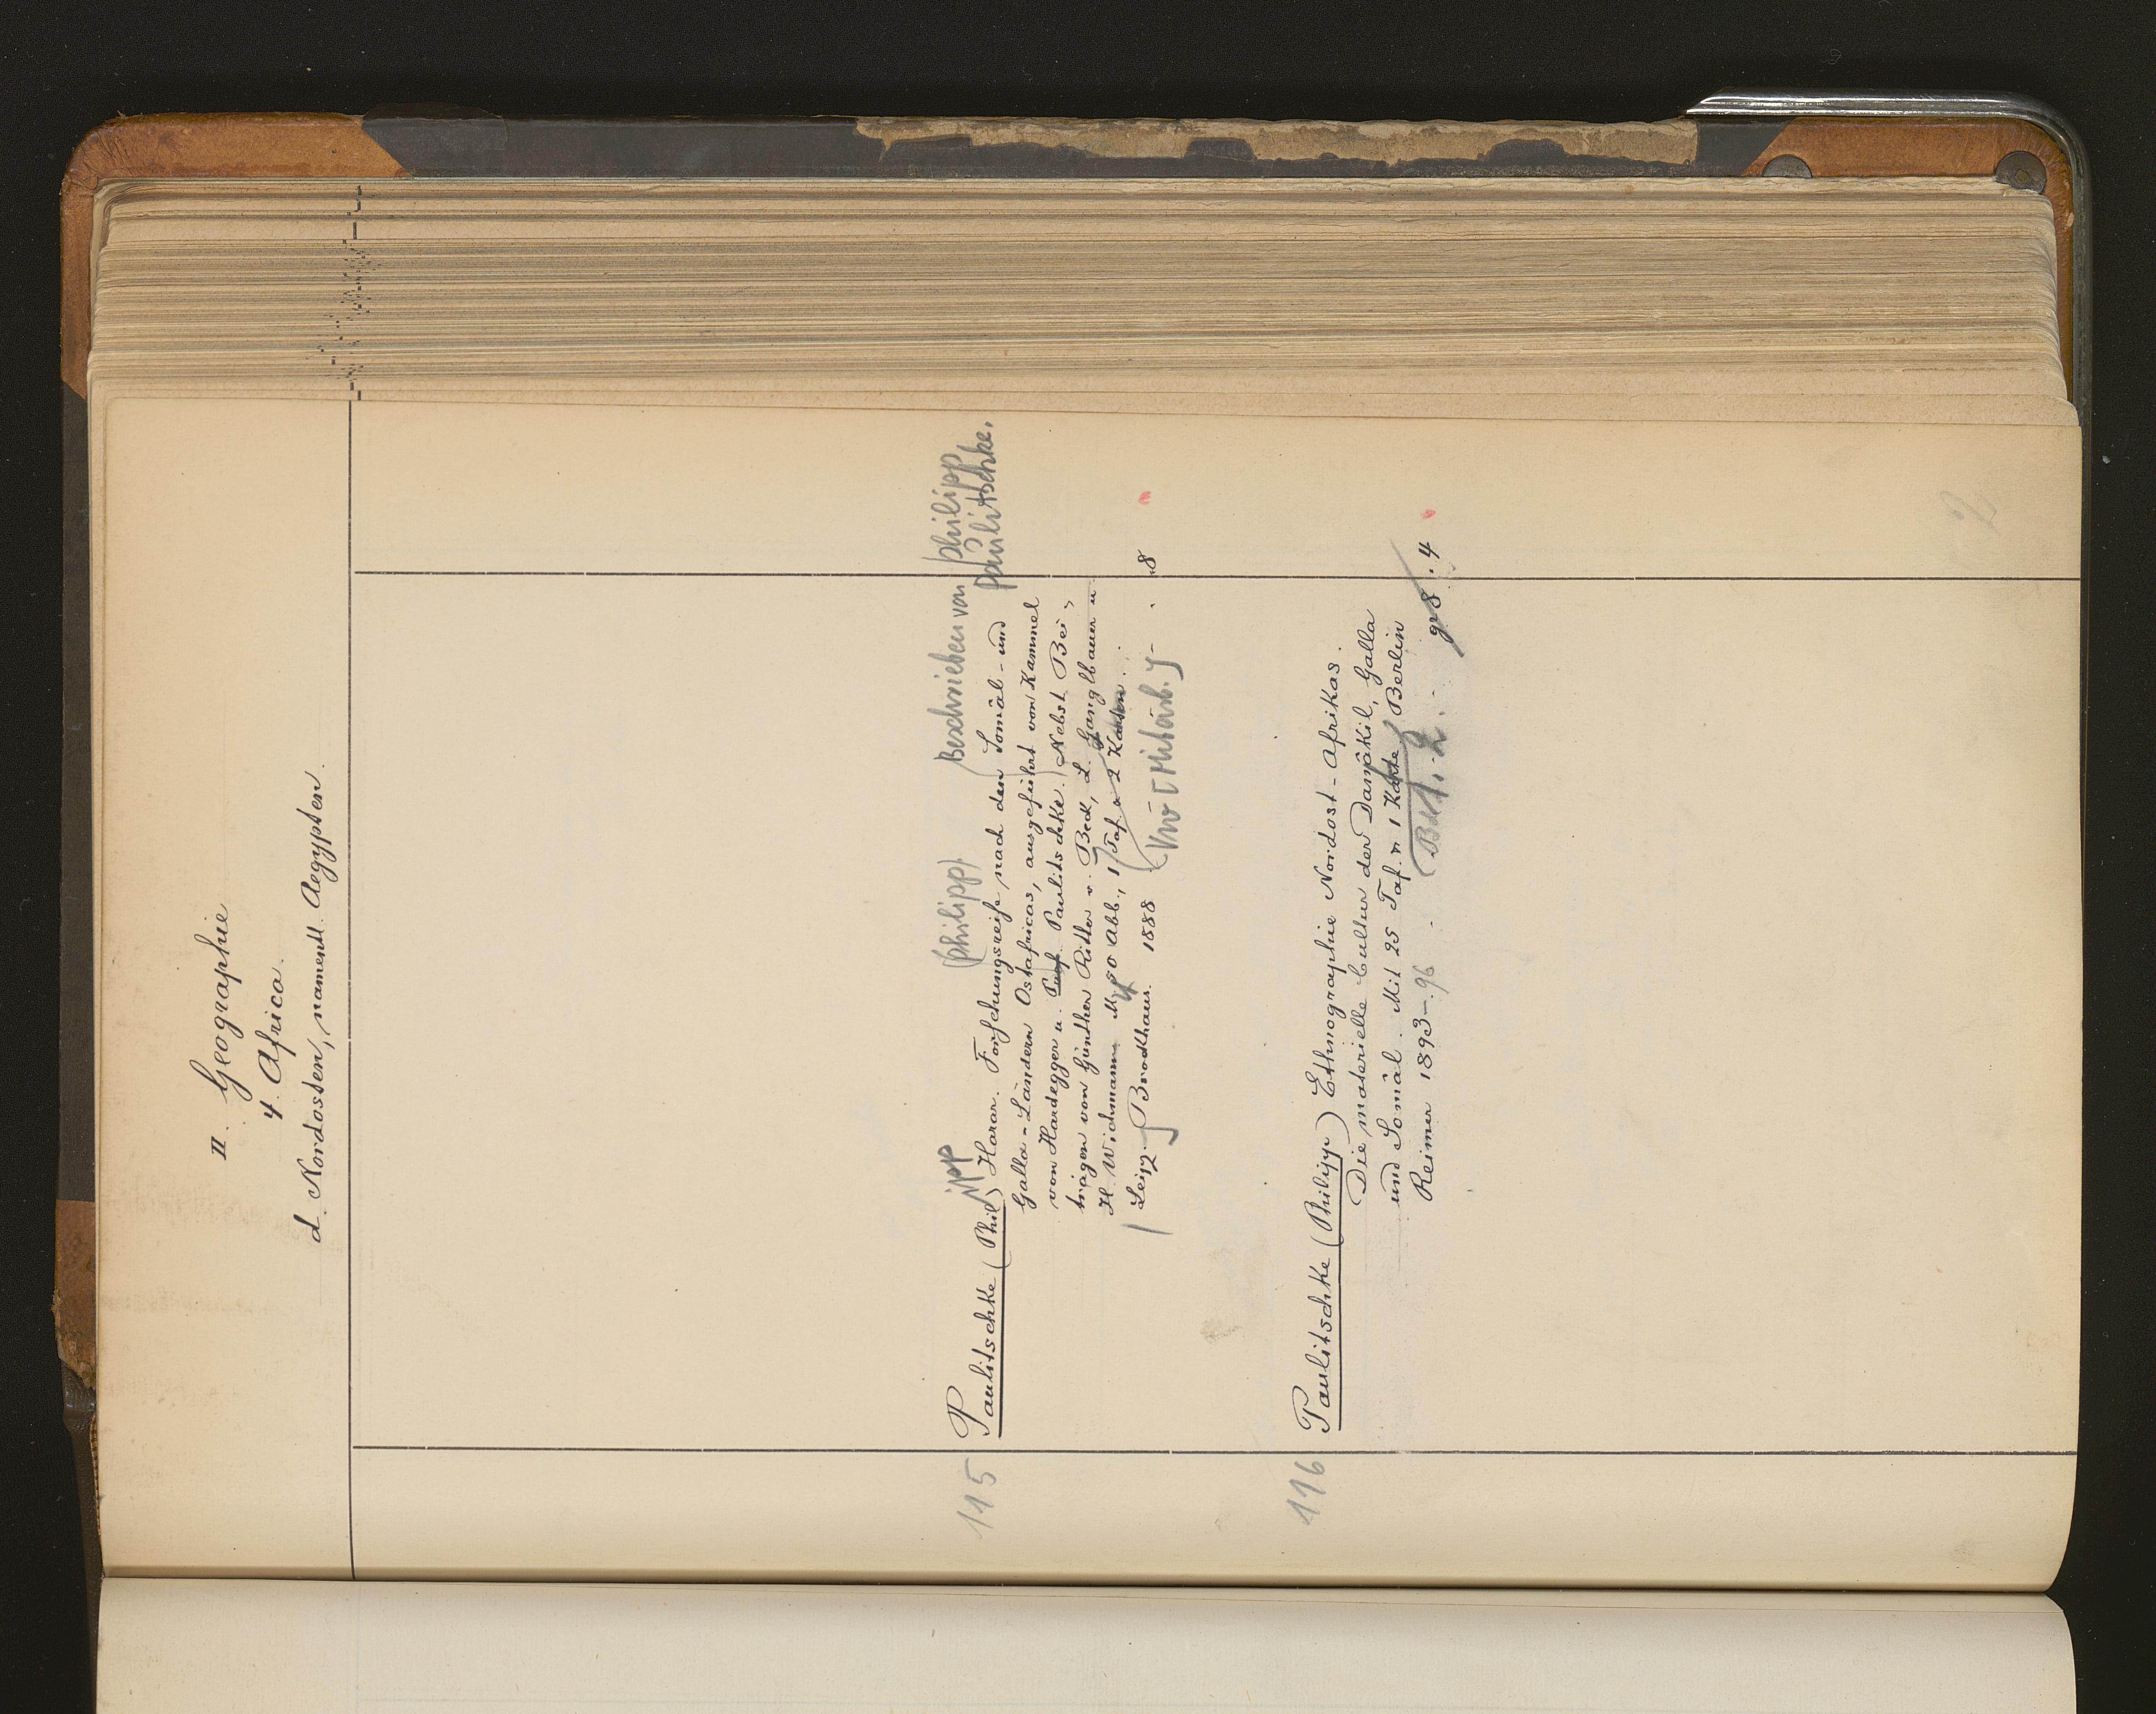 II. Geographie
4. Africa.
d. Nordosten, namentl. Aegypten.
115
Paulitschke (Philipp) Harar. Forschungsreise nach den Somâl- und
(Philipp) Beschrieben von Philipp Paulitschke.
Galla-Ländern Ostafricas, ausgeführt von Kammel
von Hardegger u. Prof. Paulitschke. Nebst Bei-
trägen von Günther Ritter v. Beck, L. Ganglbauer u
H. Wichmann M 50 Abb., 1 Taf. u 2 Karten.
Leipz. Brockhaus. 1888 . 8
116
Paulitschke (Philipp) Ethnographie Nordost-Afrikas.
Die materielle Cultur der Danâkil, Galla
und Somâl. Mit 25 Taf. n 1 Karte Berlin
Reimer 1893-.96 Bd 1. 2. gr 8. 4
2